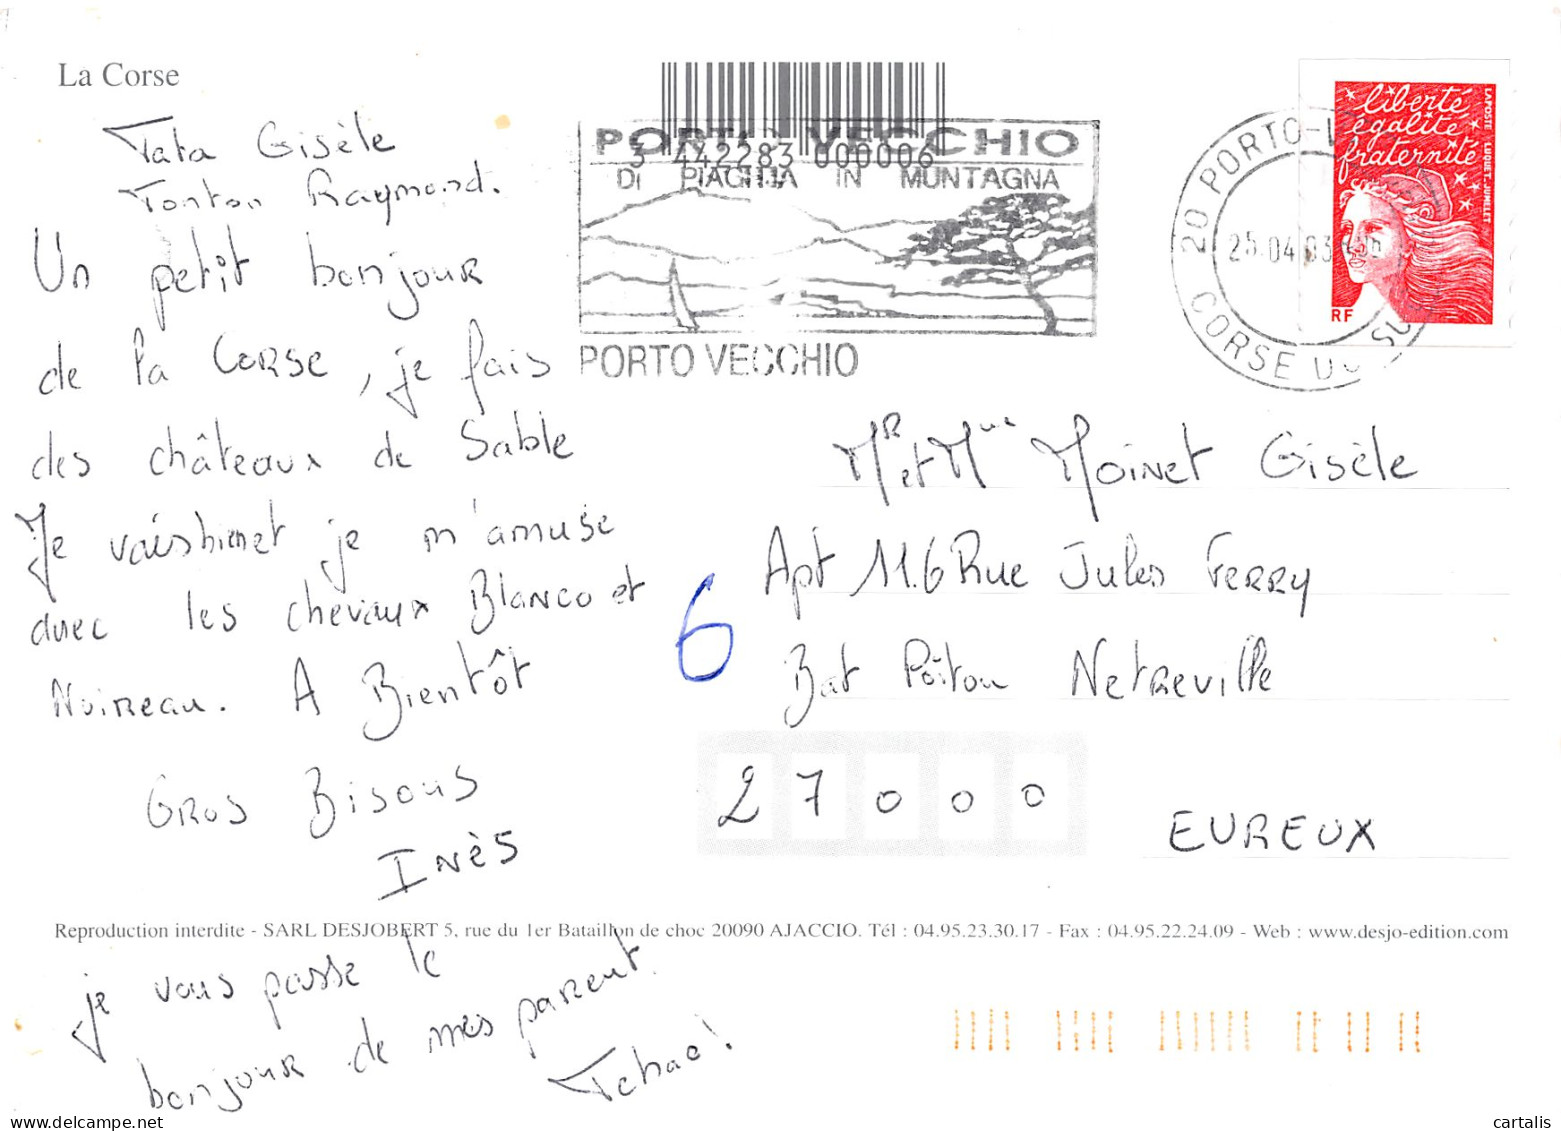 La Corse
Tata Gisèle
Tonton Raymond.
Un petit bonjour
de la Corse, je fais
des châteaux de Sable
Je vais bien et je m'amuse
avec les chevaux Blanco et
Noireau. A Bientôt
Gros Bisous
Inès
je vous passe le
bonjour de mes parent.
Tchao!
3 442283 000006
PORTO VECCHIO
DI PIAGHJA IN MUNTAGNA
PORTO VECCHIO
20 PORTO-V
25.04.03
CORSE DU SU
liberté
égalité
fraternité
RF
LAPOSTE LUQUET-JUMELET
Mr et Mme Moinet Gisèle
Apt 11.6 Rue Jules Ferry
Bat Poitou Netreville
6
27000
EUREUX
Reproduction interdite - SARL DESJOBERT 5, rue du 1er Bataillon de choc 20090 AJACCIO. Tél : 04.95.23.30.17 - Fax : 04.95.22.24.09 - Web : www.desjo-edition.com
cartalis
www.delcampe.net